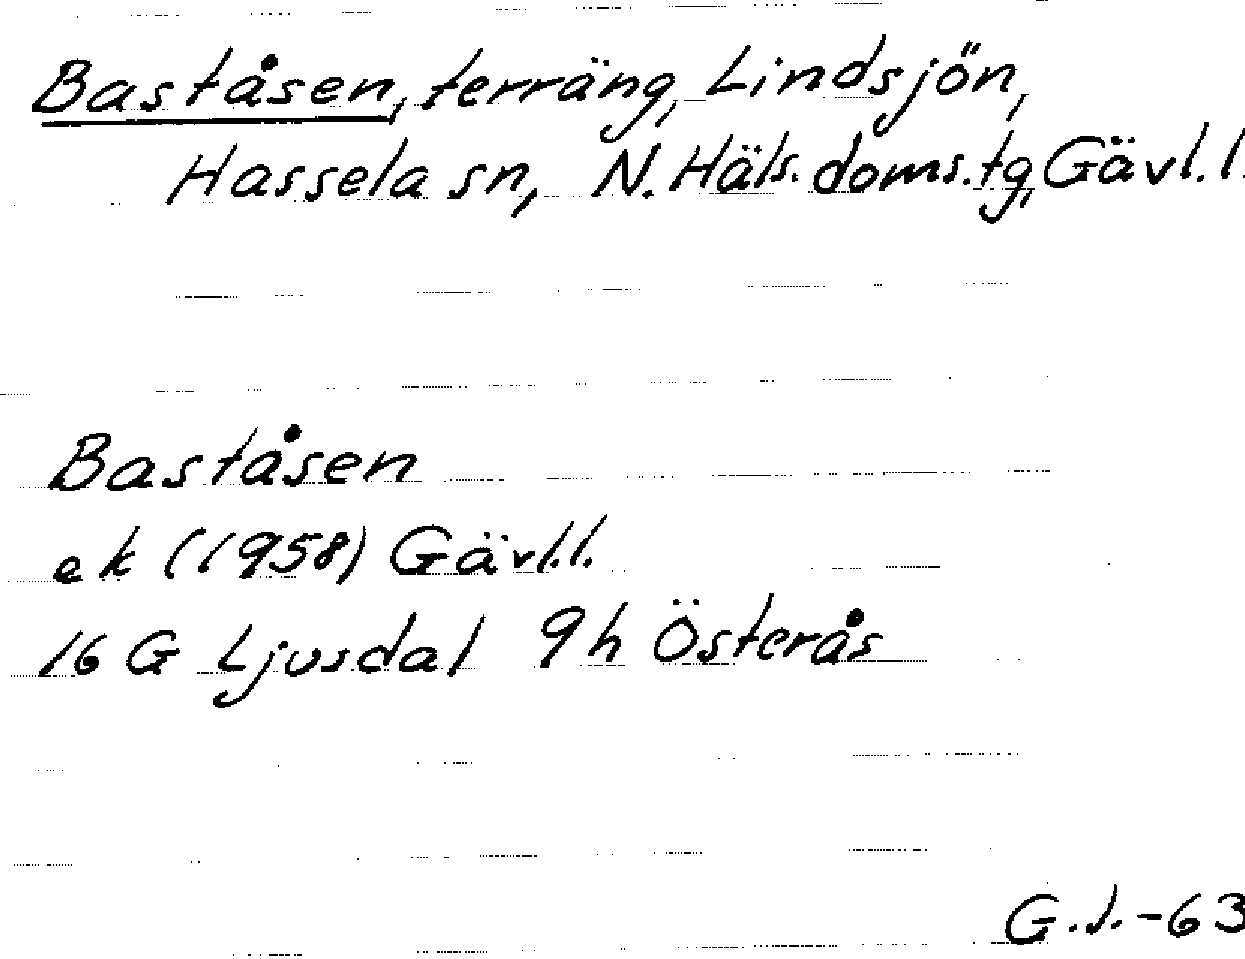 Baståsen, terräng, Lindsjön,
Hassela sn, N. Häls. doms. tg, Gävl. l.
Baståsen
ek (1958) Gävl.l.
16 G Ljusdal 9h Österås
G.J.-63